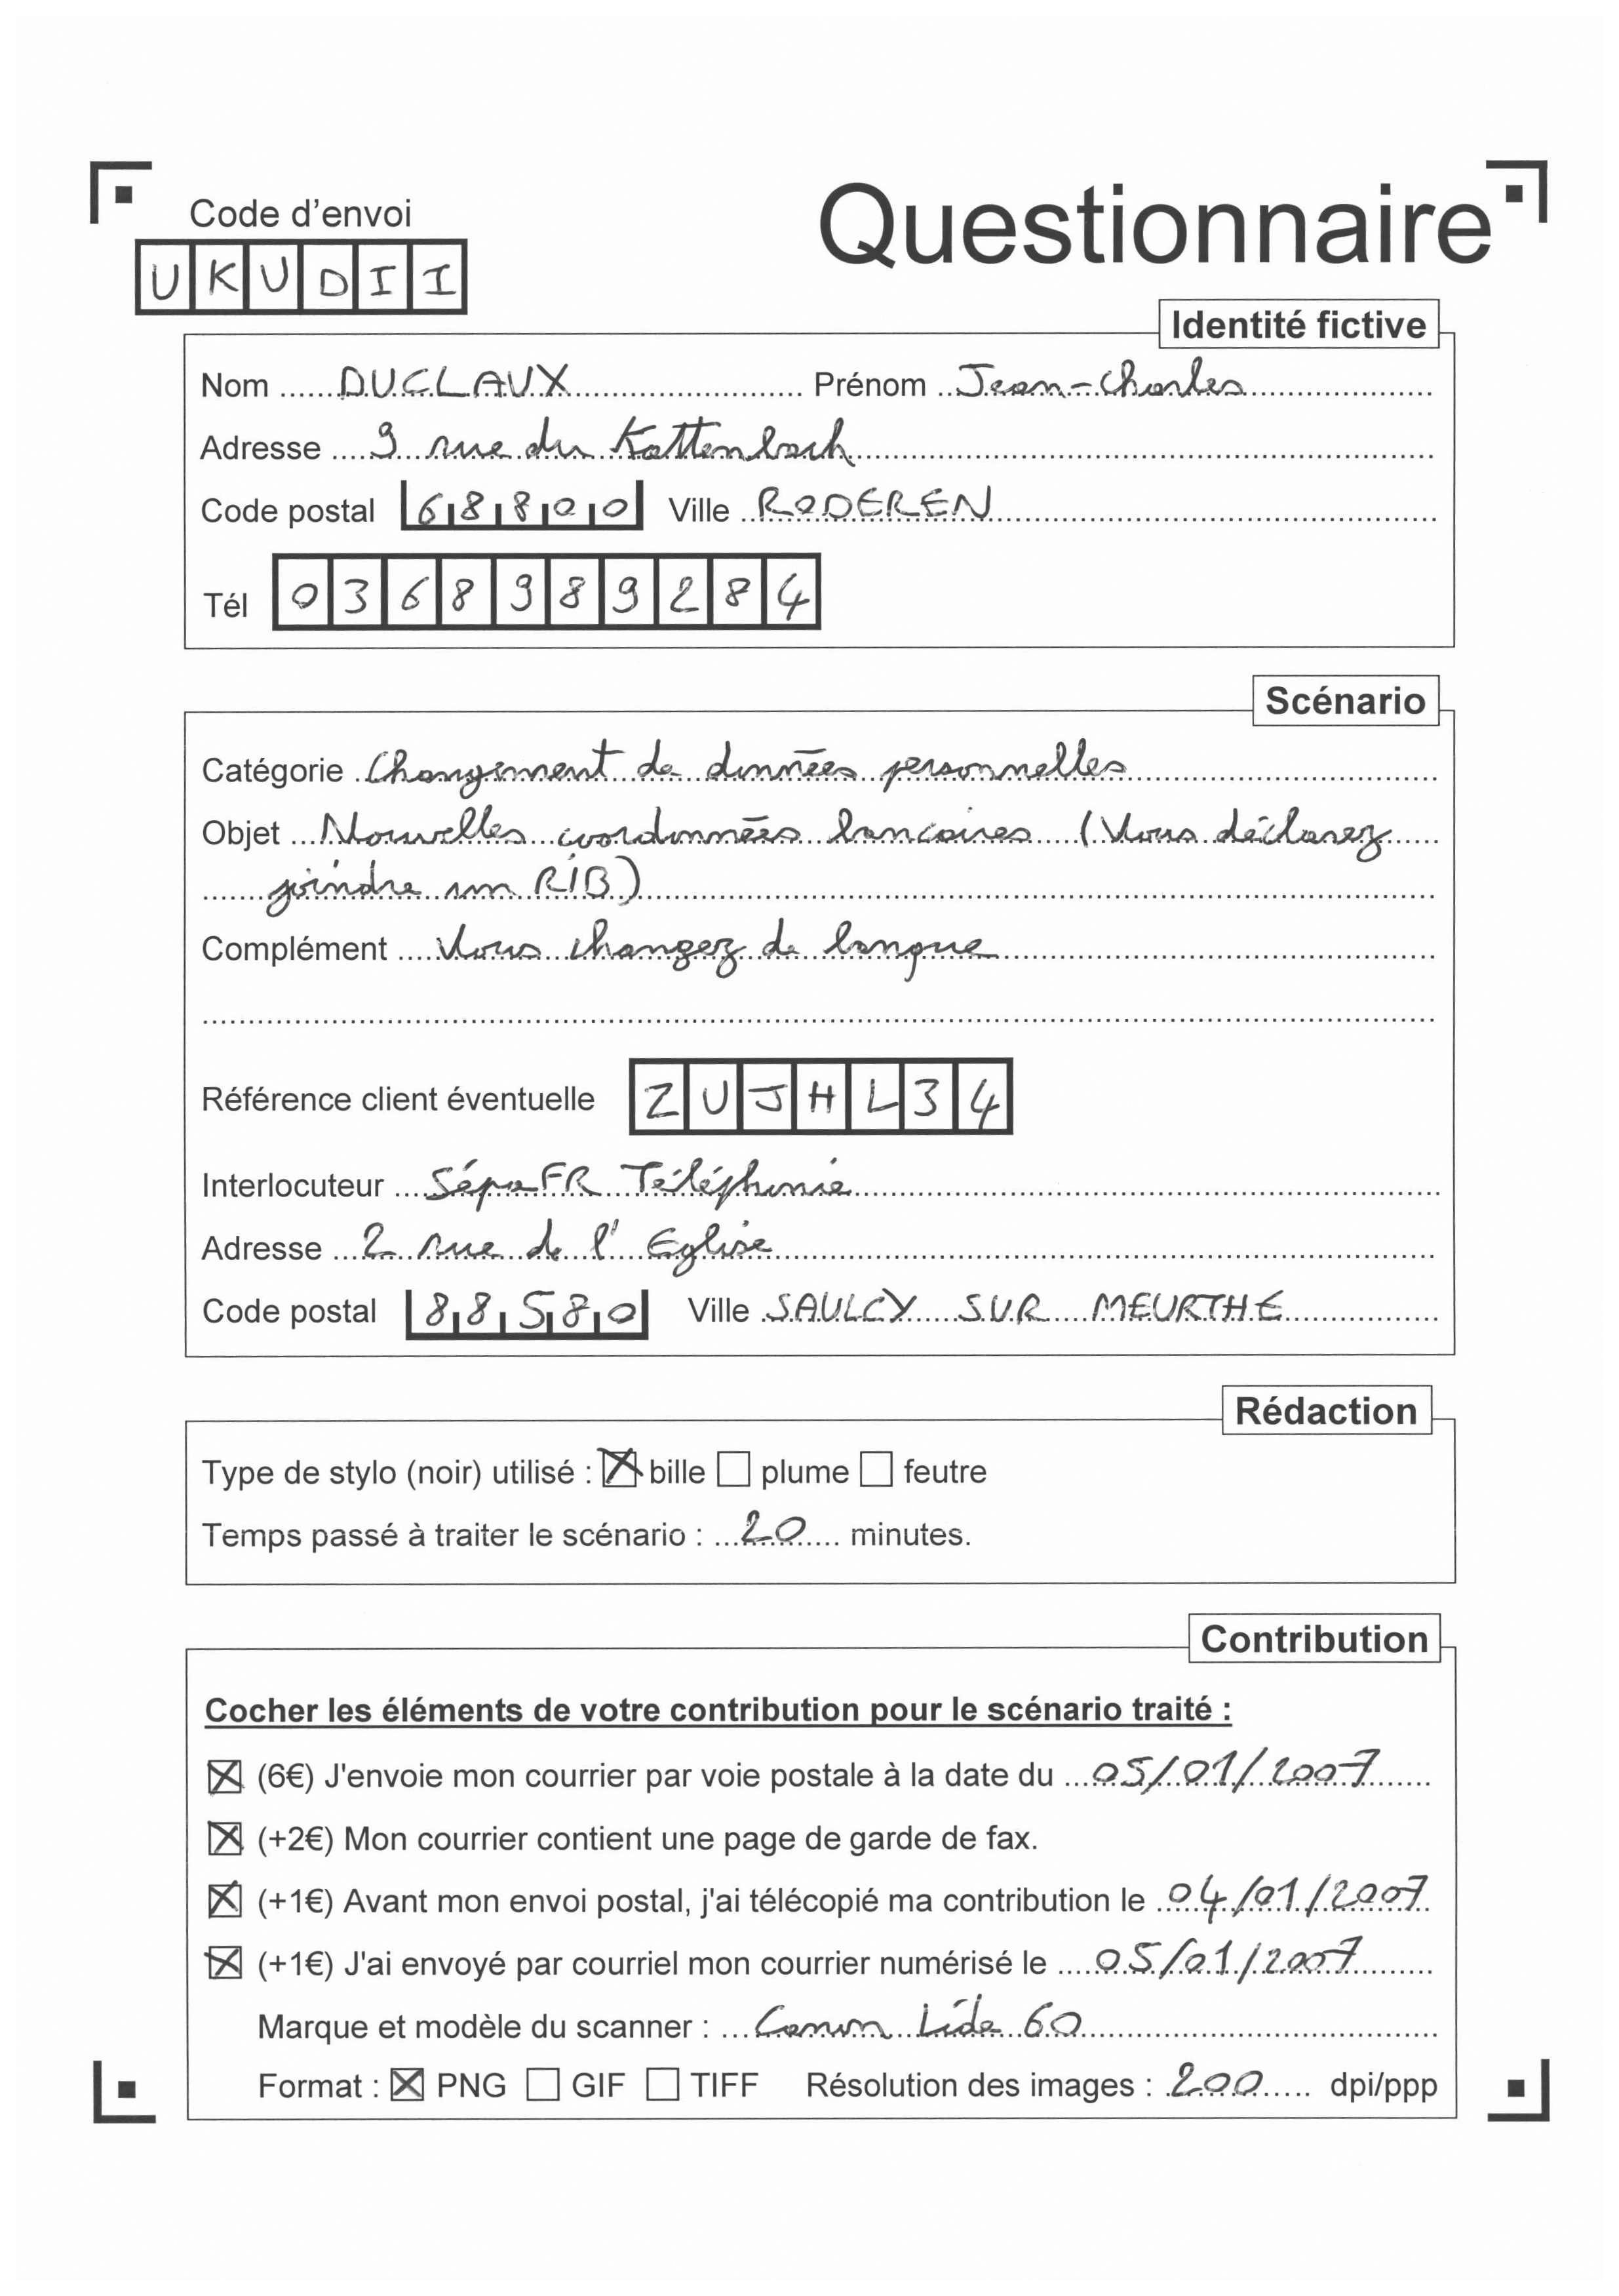 Code d'envoi
Questionnaire
UKUDII
Identité fictive
Nom DUCLAUX Prénom Jean-Charles
Adresse 9 rue du Kattenbach
Code postal 68800 Ville RODEREN
Tél 0368989284
Scénario
Catégorie Changement de données personnelles
Objet Nouvelles coordonnées bancaires (Vous déclarez
joindre un RIB)
Complément Vous changez de langue
Référence client éventuelle ZUJHL34
Interlocuteur SépaFR Téléphonie
Adresse 2 rue de l'Eglise
Code postal 88580 Ville SAULCY SUR MEURTHE
Rédaction
Type de stylo (noir) utilisé : ☒ bille ☐ plume ☐ feutre
Temps passé à traiter le scénario : 20 minutes.
Contribution
Cocher les éléments de votre contribution pour le scénario traité :
☒ (6€) J'envoie mon courrier par voie postale à la date du 05/01/2007
☒ (+2€) Mon courrier contient une page de garde de fax.
☒ (+1€) Avant mon envoi postal, j'ai télécopié ma contribution le 04/01/2007
☒ (+1€) J'ai envoyé par courriel mon courrier numérisé le 05/01/2007
Marque et modèle du scanner : Canon Lide 60
Format : ☒ PNG ☐ GIF ☐ TIFF Résolution des images : 200 dpi/ppp